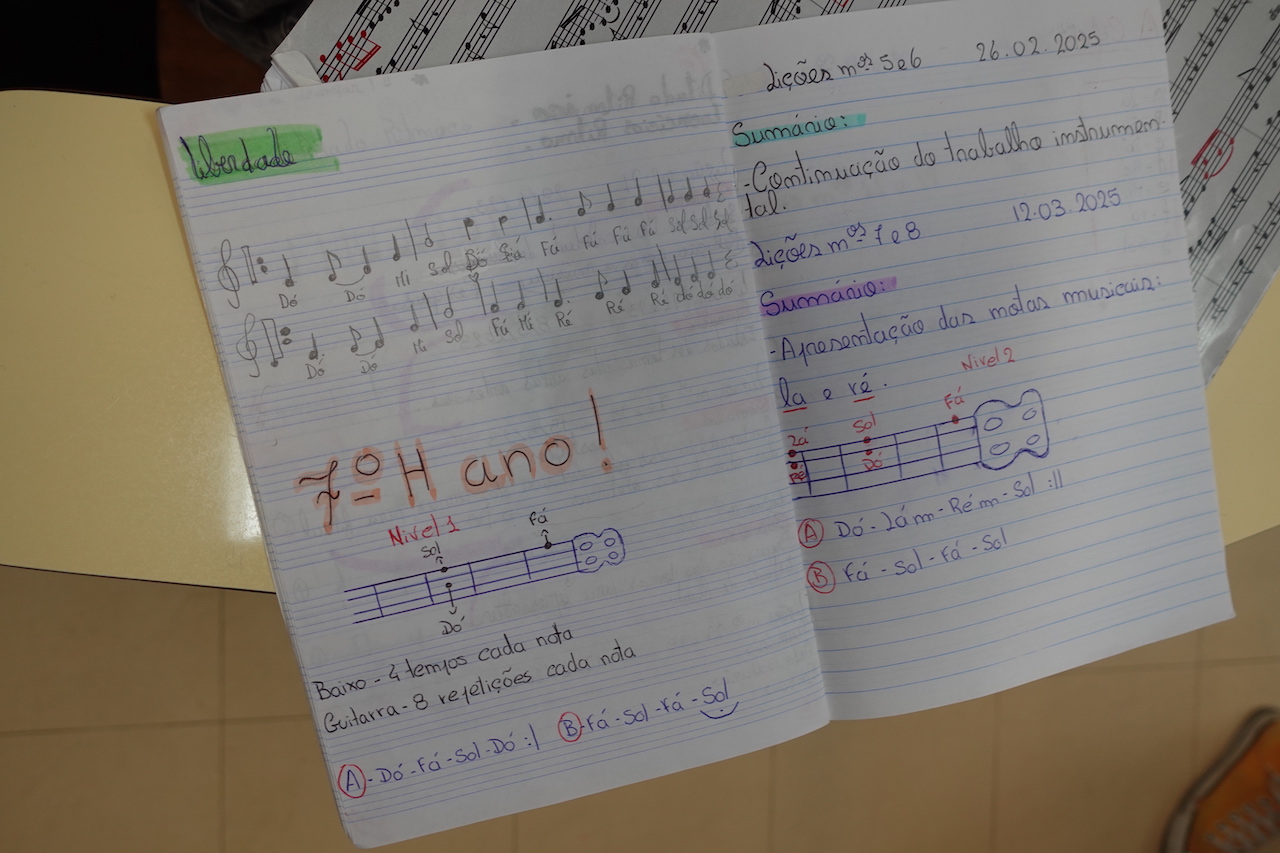 liberdade
Dó Dó Mi Sol Fá Fá Fá Fá Sol Sol Sol
Dó Dó Mi Sol Fá Mi Ré Ré Ré dó dó dó
7º H ano!
Nivel 1
Sol Fá
Dó
Baixo - 4 tempos cada nota
Guitarra - 8 repetições cada nota
A - Dó - Fá - Sol - Dó :| B - Fá - Sol - Fá - Sol
Lições nºs 5 e 6 26.02.2025
Sumário:
- Continuação do trabalho instrumen-
tal.
Lições nºs 7 e 8 12.03.2025
Sumário:
- Apresentação das notas musicais:
la e ré.
Nivel 2
Lá Sol Fá
Ré Dó
A Dó - Lám - Rém - Sol :||
B Fá - Sol - Fá - Sol